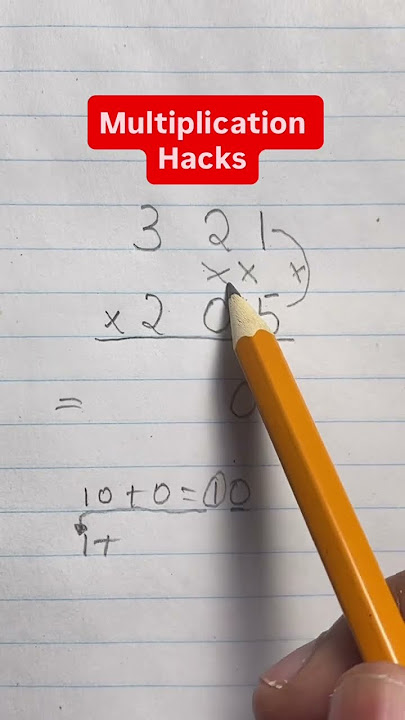 Multiplication
Hacks
3 2 1
x x x
x 2 0 5
= 0
10 + 0 = 10
1+